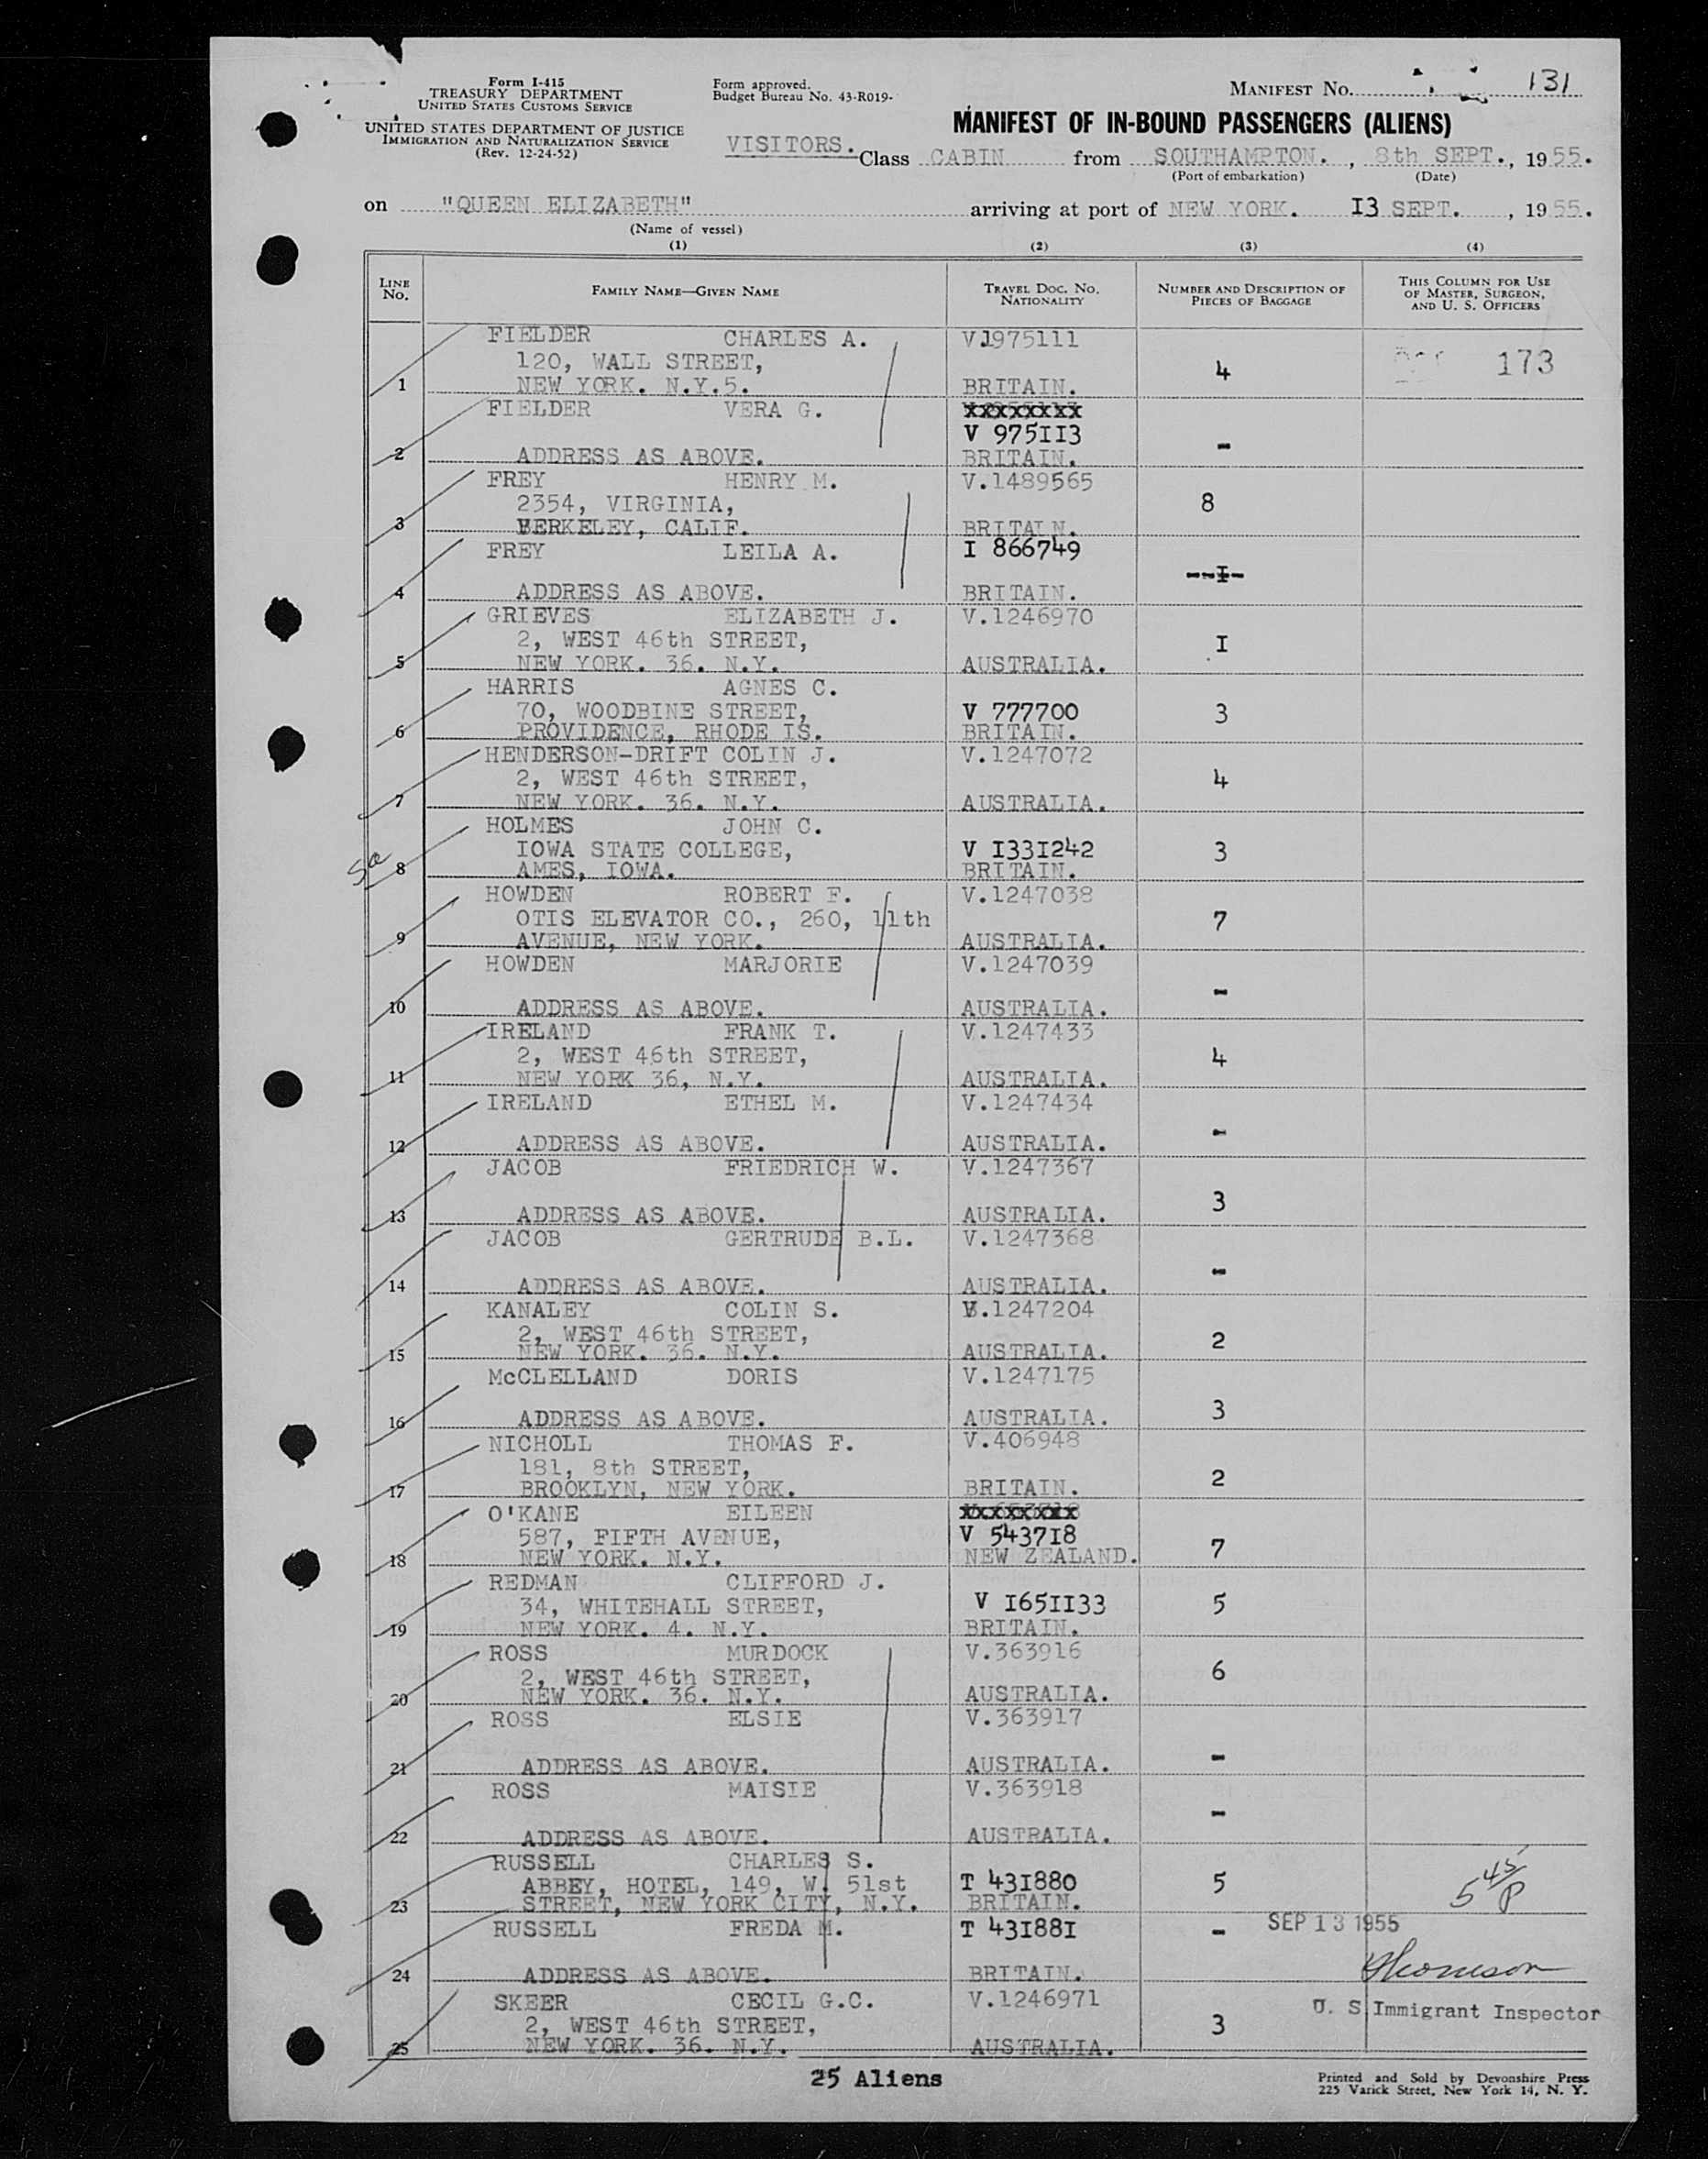 Form I-415
TREASURY DEPARTMENT
UNITED STATES CUSTOMS SERVICE
UNITED STATES DEPARTMENT OF JUSTICE
IMMIGRATION AND NATURALIZATION SERVICE
(Rev. 12-24-52)
Form approved.
Budget Bureau No. 43-R019-
MANIFEST NO. 131
MANIFEST OF IN-BOUND PASSENGERS (ALIENS)
VISITORS. Class CABIN from SOUTHAMPTON. , 8th SEPT., 1955.
(Port of embarkation) (Date)
on "QUEEN ELIZABETH" arriving at port of NEW YORK. I3 SEPT. , 1955.
(Name of vessel)
(1) (2) (3) (4)
LINE No. FAMILY NAME—GIVEN NAME TRAVEL DOC. NO. NATIONALITY NUMBER AND DESCRIPTION OF PIECES OF BAGGAGE THIS COLUMN FOR USE OF MASTER, SURGEON, AND U. S. OFFICERS
FIELDER CHARLES A. V.1975111
120, WALL STREET, 4 173
1 NEW YORK. N.Y.5. BRITAIN.
FIELDER VERA G. xxxxxxxx
V 975II3 -
2 ADDRESS AS ABOVE. BRITAIN.
FREY HENRY M. V.1489565
2354, VIRGINIA, 8
3 BERKELEY, CALIF. BRITAIN.
FREY LEILA A. I 866749
--I-
4 ADDRESS AS ABOVE. BRITAIN.
GRIEVES ELIZABETH J. V.1246970
2, WEST 46th STREET, I
5 NEW YORK. 36. N.Y. AUSTRALIA.
HARRIS AGNES C.
70, WOODBINE STREET, V 777700 3
6 PROVIDENCE, RHODE IS. BRITAIN.
HENDERSON-DRIFT COLIN J. V.1247072
2, WEST 46th STREET, 4
7 NEW YORK. 36. N.Y. AUSTRALIA.
HOLMES JOHN C.
IOWA STATE COLLEGE, V I33I242 3
8 AMES, IOWA. BRITAIN.
HOWDEN ROBERT F. V.1247038
OTIS ELEVATOR CO., 260, 11th 7
9 AVENUE, NEW YORK. AUSTRALIA.
HOWDEN MARJORIE V.1247039
-
10 ADDRESS AS ABOVE. AUSTRALIA.
IRELAND FRANK T. V.1247433
2, WEST 46th STREET, 4
11 NEW YORK 36, N.Y. AUSTRALIA.
IRELAND ETHEL M. V.1247434
-
12 ADDRESS AS ABOVE. AUSTRALIA.
JACOB FRIEDRICH W. V.1247367
3
13 ADDRESS AS ABOVE. AUSTRALIA.
JACOB GERTRUDE B.L. V.1247368
-
14 ADDRESS AS ABOVE. AUSTRALIA.
KANALEY COLIN S. V.1247204
2, WEST 46th STREET, 2
15 NEW YORK. 36. N.Y. AUSTRALIA.
McCLELLAND DORIS V.1247175
3
16 ADDRESS AS ABOVE. AUSTRALIA.
NICHOLL THOMAS F. V.406948
181, 8th STREET, 2
17 BROOKLYN, NEW YORK. BRITAIN.
O'KANE EILEEN xxxxxxxx
587, FIFTH AVENUE, V 5437I8 7
18 NEW YORK. N.Y. NEW ZEALAND.
REDMAN CLIFFORD J.
34, WHITEHALL STREET, V I65II33 5
19 NEW YORK. 4. N.Y. BRITAIN.
ROSS MURDOCK V.363916
2, WEST 46th STREET, 6
20 NEW YORK. 36. N.Y. AUSTRALIA.
ROSS ELSIE V.363917
-
21 ADDRESS AS ABOVE. AUSTRALIA.
ROSS MAISIE V.363918
-
22 ADDRESS AS ABOVE. AUSTRALIA.
RUSSELL CHARLES S.
ABBEY, HOTEL, 149, W. 51st T 43I880 5 5 45/P
23 STREET, NEW YORK CITY, N.Y. BRITAIN.
RUSSELL FREDA M. T 43I88I - SEP 13 1955
24 ADDRESS AS ABOVE. BRITAIN.
SKEER CECIL G.C. V.1246971 U. S. Immigrant Inspector
2, WEST 46th STREET, 3
25 NEW YORK. 36. N.Y. AUSTRALIA.
25 Aliens
Printed and Sold by Devonshire Press
225 Varick Street, New York 14, N. Y.